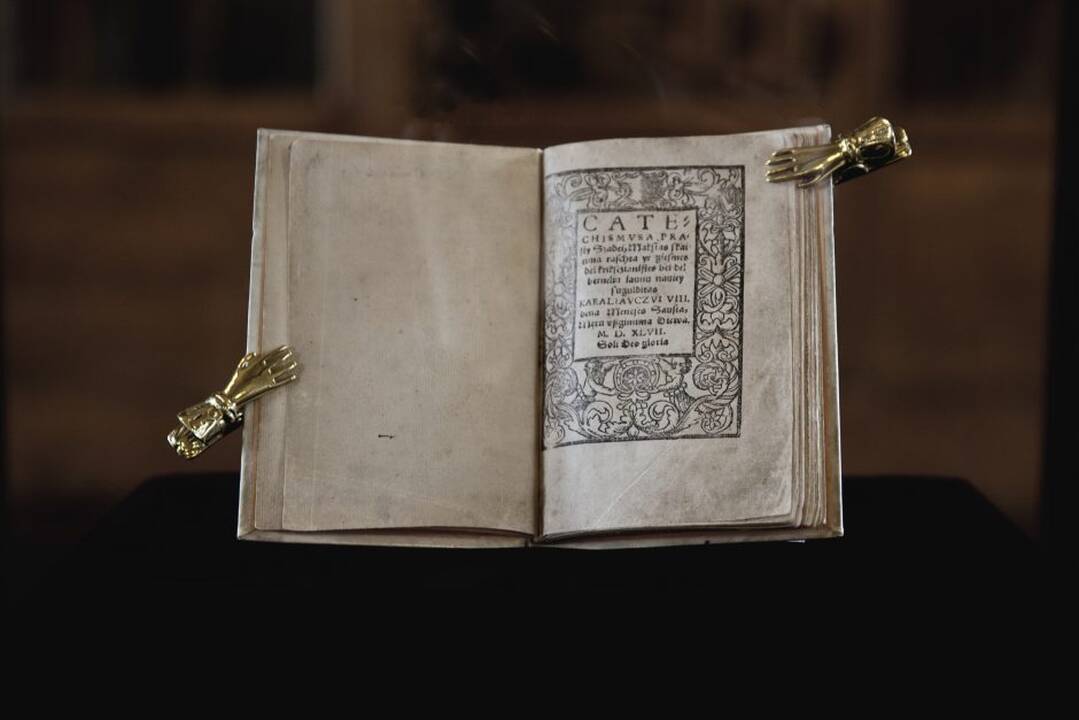 CATE⸗
CHISMVSA PRA-
ſty Szadei, Makſlas ſkai-
tima raſchta yr gieſmes
del krikſczianiſtes bei del
berneliu iaunu nauiey
ſugulditas
KARALIAVCZVI VIII.
dena Meneſes Sauſia,
Metu vßgimima Diewa.
M. D. XLVII.
Soli Deo gloria